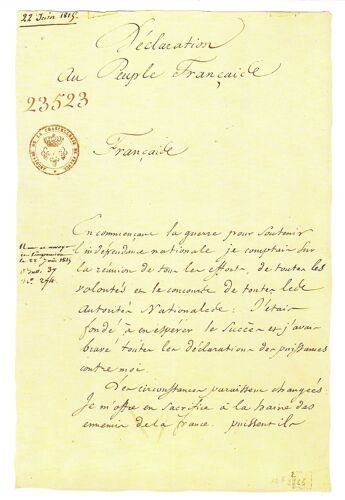 22 Juin 1815.
Déclaration
Au Peuple Française
23523
Française
En commençant la guerre pour soutenir
l'indépendance nationale je comptais sur
la réunion de tous les efforts, de toutes les
volontés et le concours de toutes les
autorités Nationales : J'étais
fondé à en espérer le succès et j'avais
bravé toutes les déclarations des puissances
contre moi.
Les circonstances paraissent changées
Je m'offre en sacrifice à la haine des
ennemis de la france. puissent ils